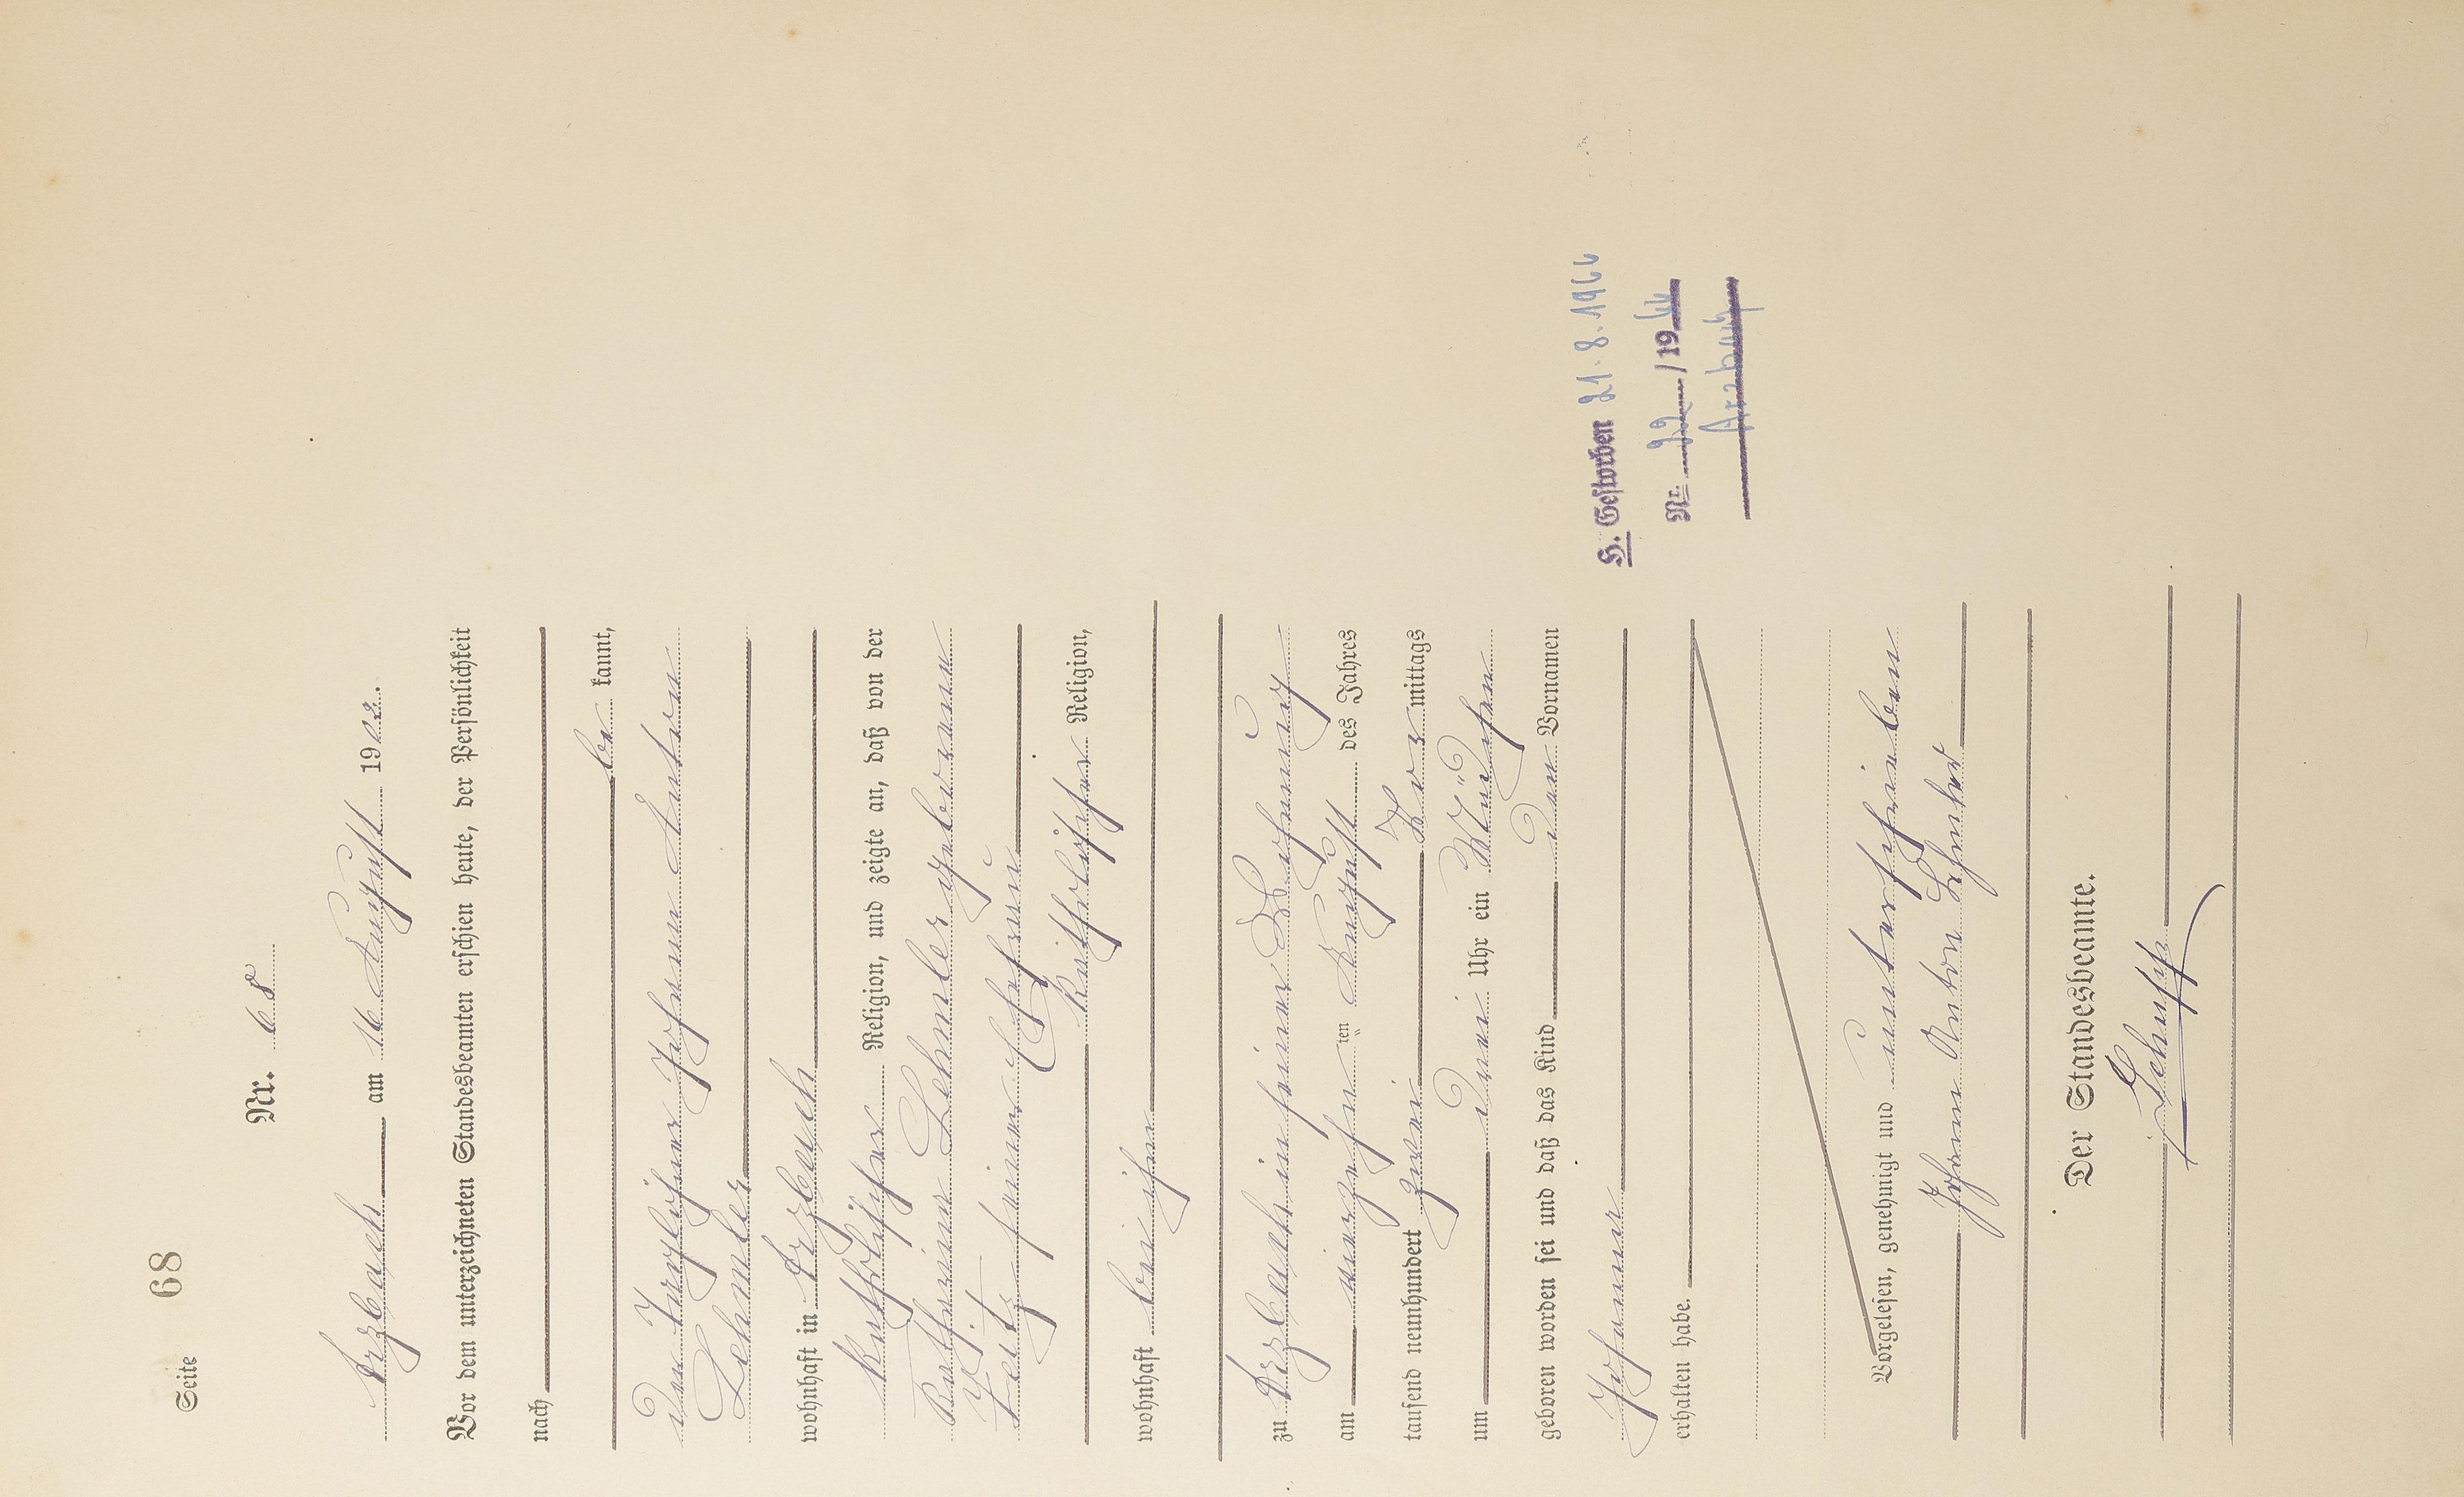 Seite 68
Nr. 68
Arzbach am 16 August 1902.
Vor dem unterzeichneten Standesbeamten erschien heute, der Persönlichkeit
nach
be kannt,
der Taglöhner Johann Anton
Lehmler
wohnhaft in Arzbach
katholischer Religion, und zeigte an, daß von der
Katharina Lehmler geborenen
seiner Ehefrau
katholischer Religion,
wohnhaft bei ihm
zu Arzbach in seiner Wohnung
am vierzehn ten August des Jahres
tausend neunhundert zwei Vor mittags
um drei Uhr ein Mädchen
geboren worden sei und daß das Kind den Vornamen
Johanna
erhalten habe.
H. Gestorben 21.8.1966
Nr. 22/1966
Arzbach
Vorgelesen, genehmigt und unterschrieben
Johann Anton Lehmler
Der Standesbeamte.